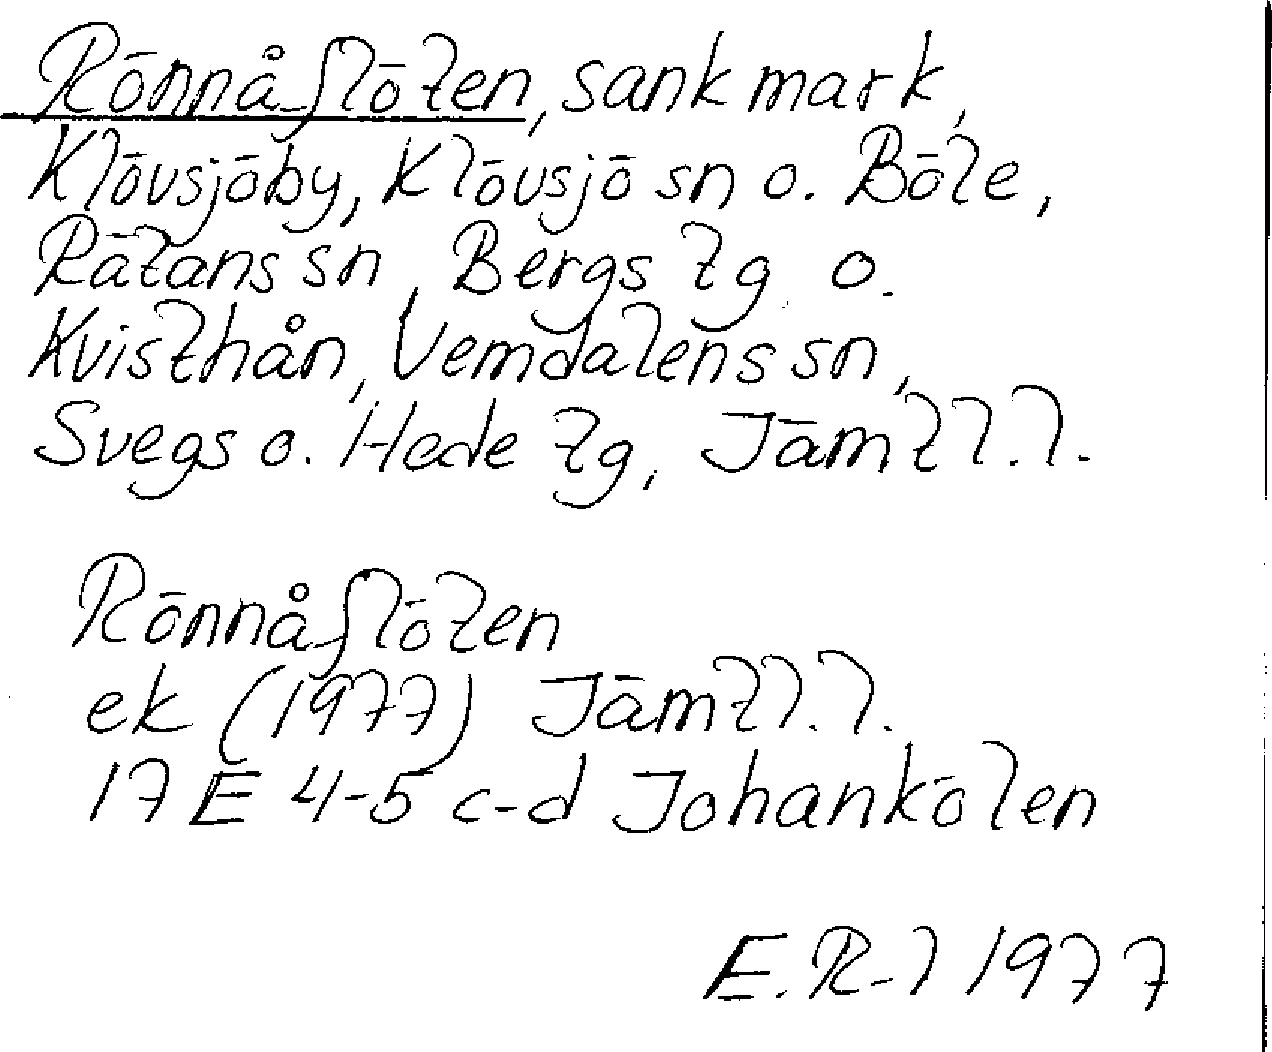 Rönnåflöten, sankmark,
Klövsjöby, Klövsjö sn o. Böle,
Rätans sn, Bergs tg o.
Kvisthån, Vemdalens sn,
Svegs o. Hede tg, Jämtl.l.
Rönnåflöten
ek (1977) Jämtl.l.
17 E 4-5 c-d Johankölen
E.R-l 1977